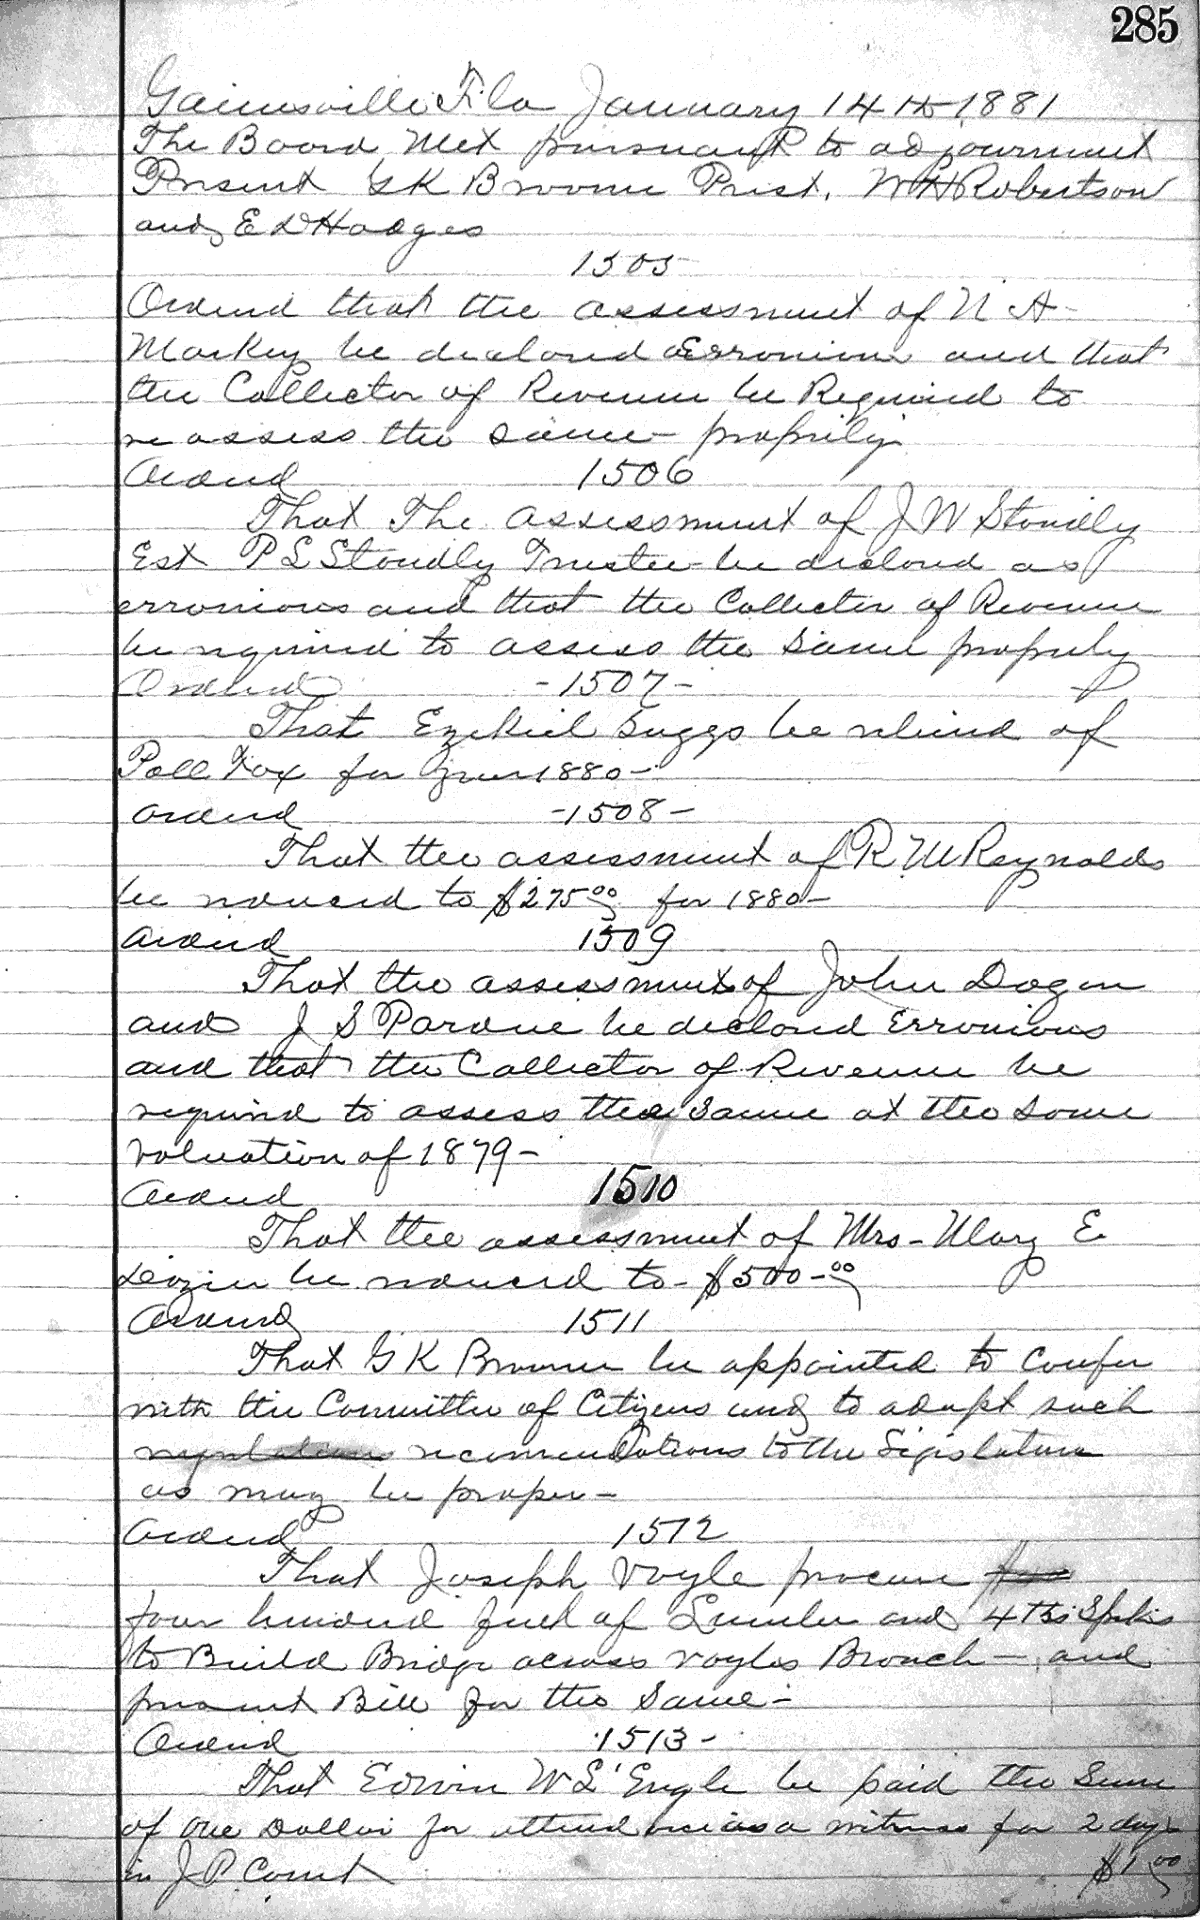 285
Gainesville Fla January 14th 1881
The Board Met pursuant to adjournment
Present G K Broome Prest, W H Robertson
and E D Hodges
1505
Ordered that the assessment of N A
Markey be declared Erronious and that
the Collector of Revenue be Required to
re assess the same properly
Ordered 1506
That The assessment of J W Stoudly
Est P L Stoudly Trustee be declared as
erronious and that the Collector of Revenue
be required to assess the same properly
Ordered -1507-
That Ezekiel Suggs be relieved of
Poll Tax for year 1880-
Ordered -1508-
That the assessment of R M Reynolds
be reduced to $275.00 for 1880-
Ordered 1509
That the assessment of John Dozen
and J S Pardue be declared Erronious
and that the Collector of Revenue be
required to assess the same at the same
valuation of 1879-
Ordered 1510
That the assessment of Mrs- Mary E
be reduced to- $500-00
Ordered 1511
That G K Broome be appointed to confer
with the Committee of Citizens and to adopt such
regulations recommendations to the Legislature
as may be proper-
Ordered 1512
That Joseph Voyle procure
four hundred feet of Lumber and 4 lbs Spikes
to Build Bridge across Voyles Branch- and
present Bill for the Same-
Ordered 1513-
That Edwin W L'Engle be paid the Sum
of One Dollar for attendance as a witness for 2 days
in J P Court $1.00